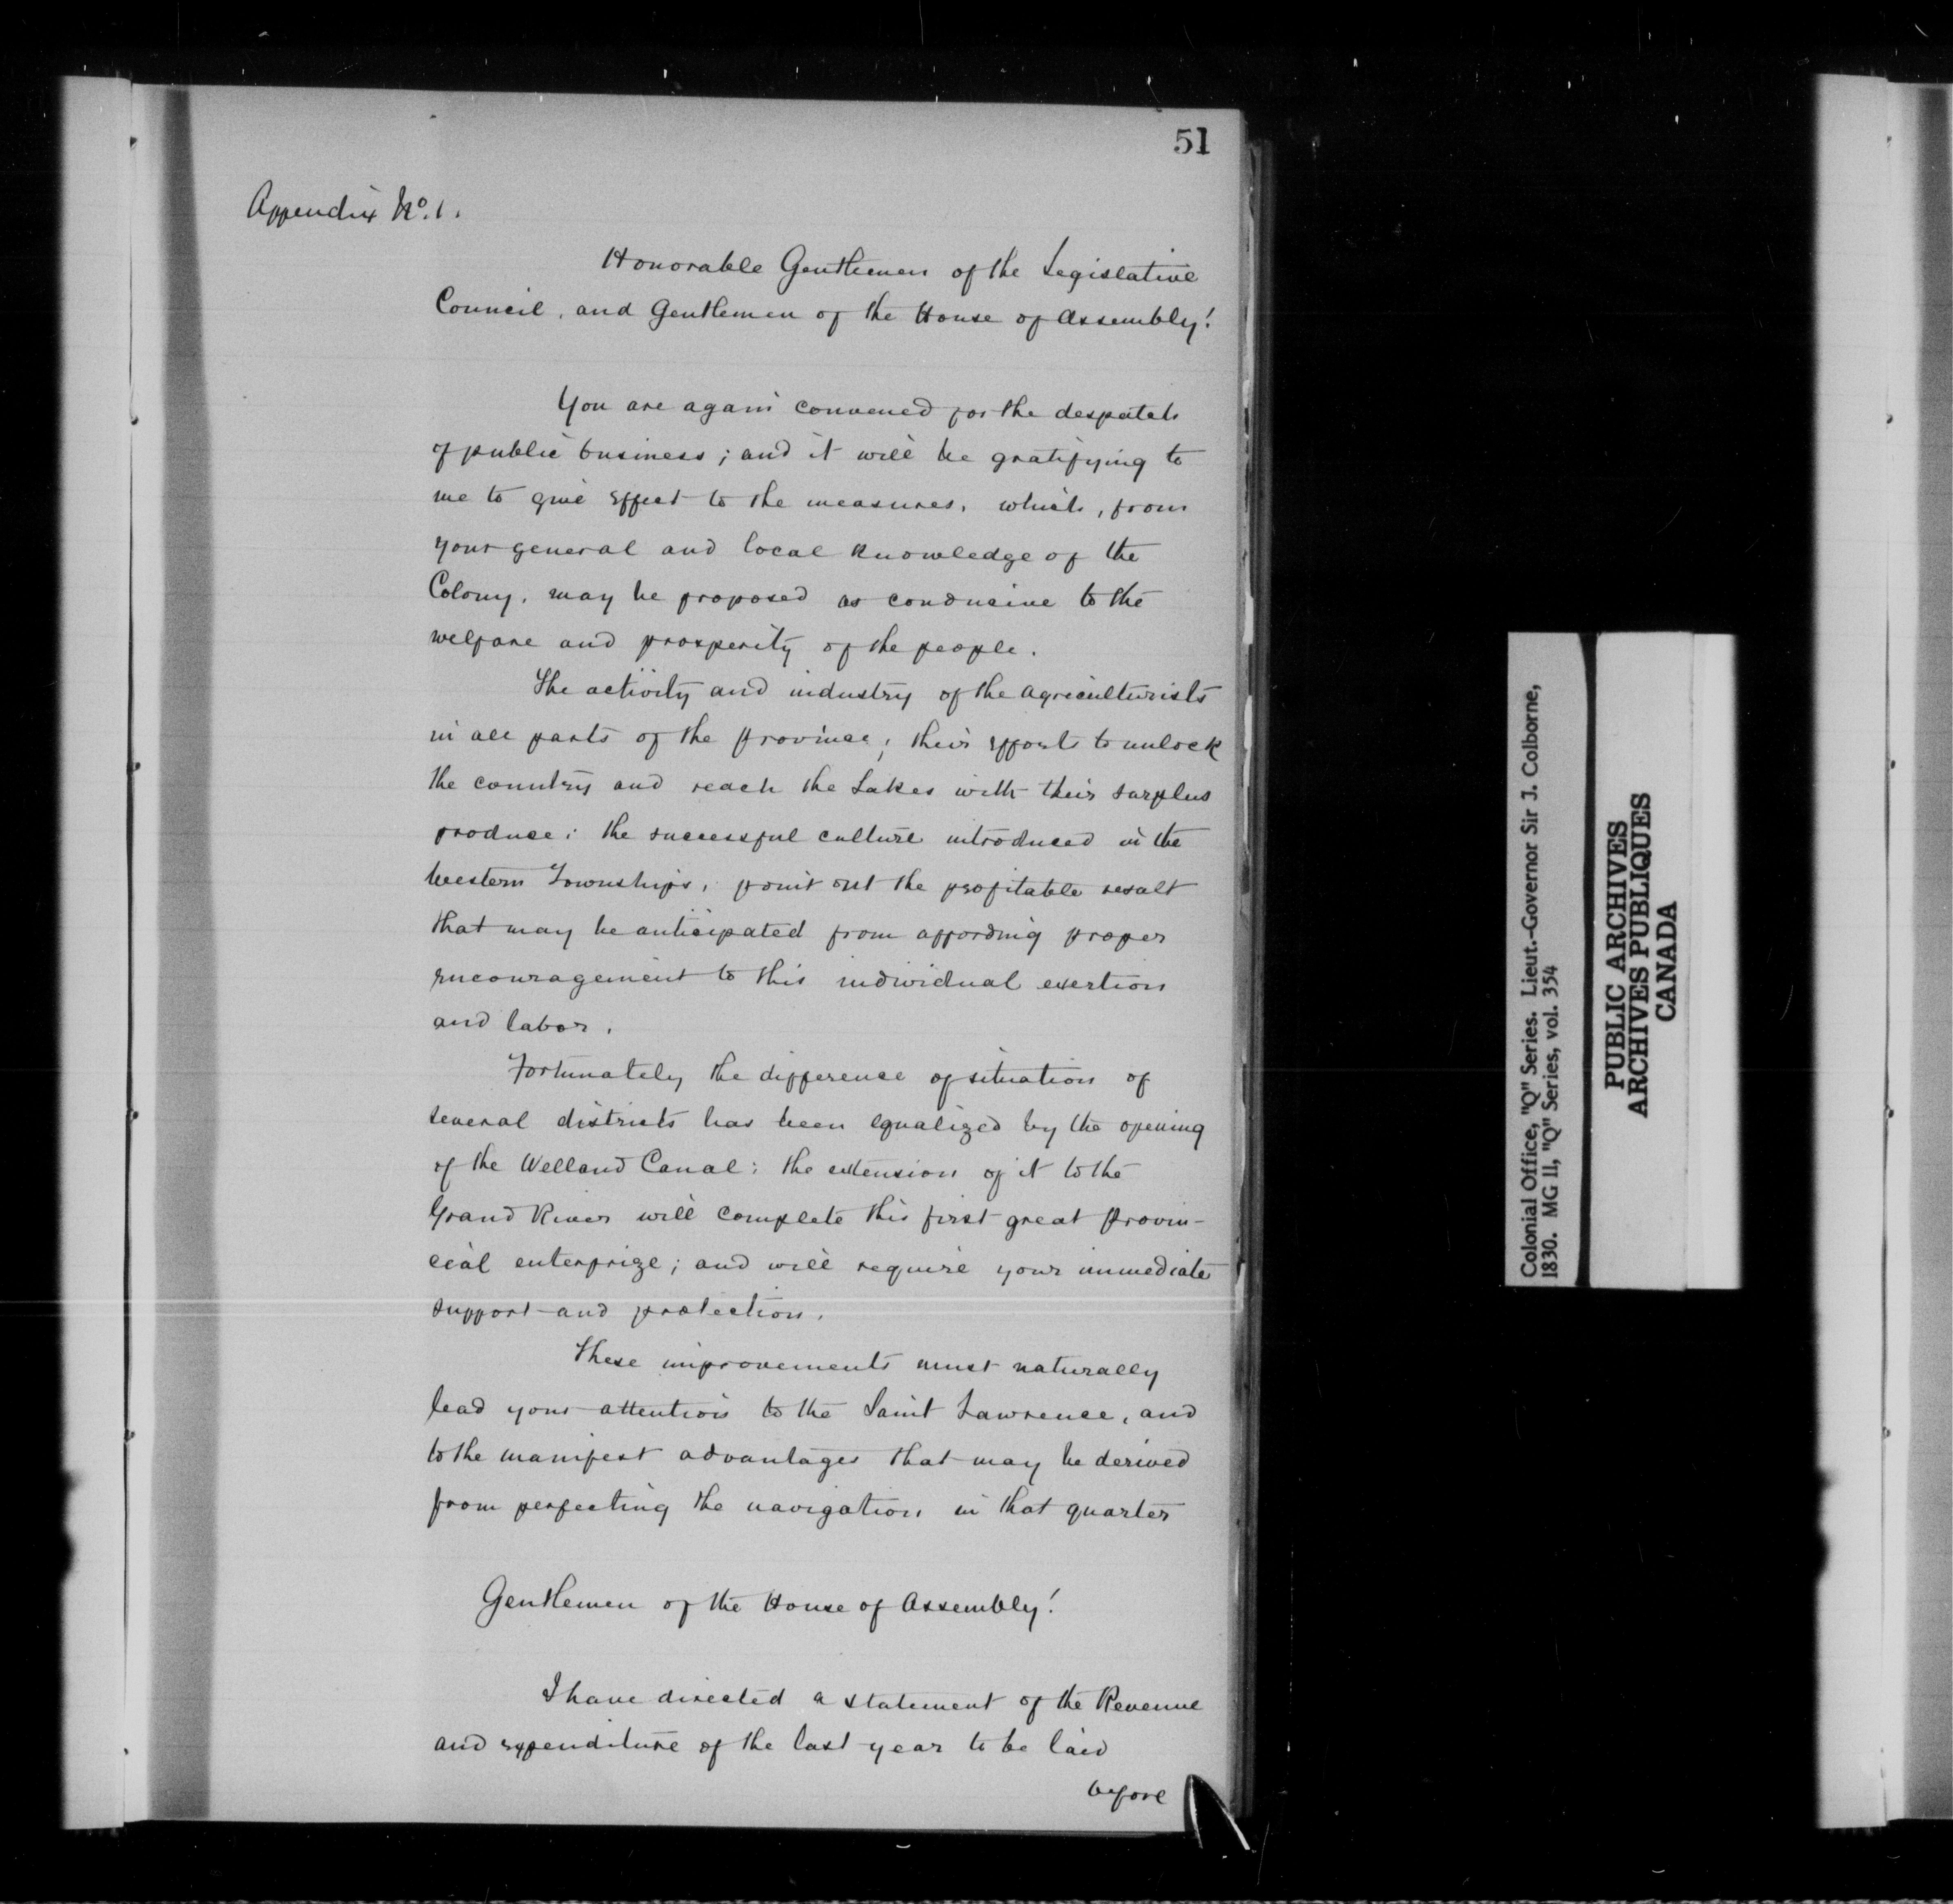 51
Appendix No. 1.
Honorable Gentlemen of the Legislative
Council, and Gentlemen of the House of Assembly!
You are again convened for the despatch
of public business; and it will be gratifying to
me to give effect to the measures, which, from
your general and local knowledge of the
Colony, may be proposed as conducive to the
welfare and prosperity of the people.
The activity and industry of the agriculturists
in all parts of the province; their efforts to unlock
the country and reach the Lakes with their surplus
produce; the successful culture introduced in the
Western Townships, point out the profitable result
that may be anticipated from affording proper
encouragement to this individual exertion
and labor.
Fortunately the difference of situation of
several districts has been equalized by the opening
of the Welland Canal; the extension of it to the
Grand River will complete this first great provin-
cial enterprize; and will require your immediate
support and protection.
These improvements must naturally
lead your attention to the Saint Lawrence, and
to the manifest advantages that may be derived
from perfecting the navigation in that quarter
Gentlemen of the House of Assembly!
I have directed a statement of the Revenue
and expenditure of the last year to be laid
before
Colonial Office, "Q" Series. Lieut.-Governor Sir J. Colborne,
1830. MG 11, "Q" Series, vol. 354
PUBLIC ARCHIVES
ARCHIVES PUBLIQUES
CANADA